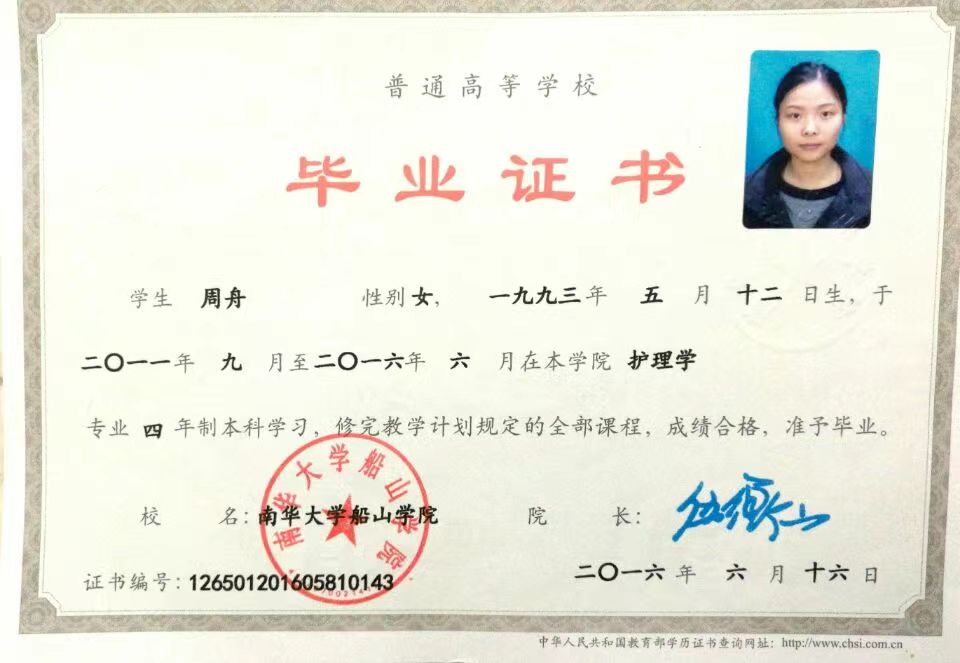 普通高等学校
毕业证书
学生 周舟 性别女，一九九三年 五 月 十二 日生，于
二〇一一年 九 月至二〇一六年 六 月在本学院 护理学
专业 四 年制本科学习，修完教学计划规定的全部课程，成绩合格，准予毕业。
南华大学船山学院
校 名：南华大学船山学院 院 长：
证书编号：126501201605810143 二〇一六年 六 月 十六 日
中华人民共和国教育部学历证书查询网址：http://www.chsi.com.cn